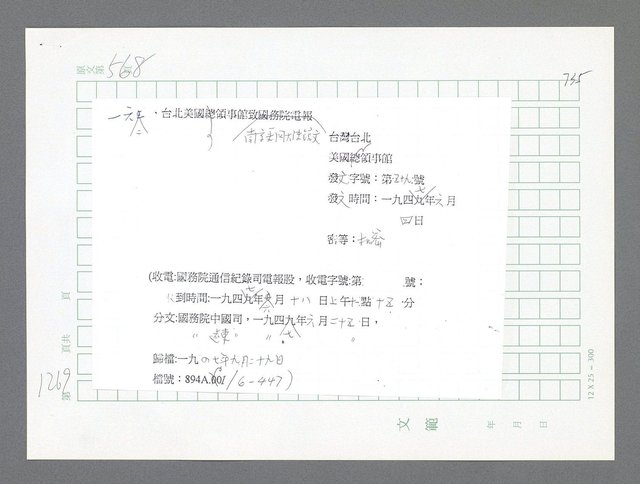 原文第568頁
735
台北美國總領事館致國務院電報
台灣台北
美國總領事館
發文字號：第 號
發文時間：一九四 年六月
四日
密等：
(收電：國務院通信紀錄司電報股，收電字號:第 號：
到時間:一九四 年 月十八日上午十點十五分
分文：國務院中國司，一九四 年六月二十五日，
〃 遠東 〃 〃
歸檔:一九四七年九月二十九日
檔號：894A.00/6-447)
第1269頁共 頁
12 X 25 = 300
文範
年 月 日